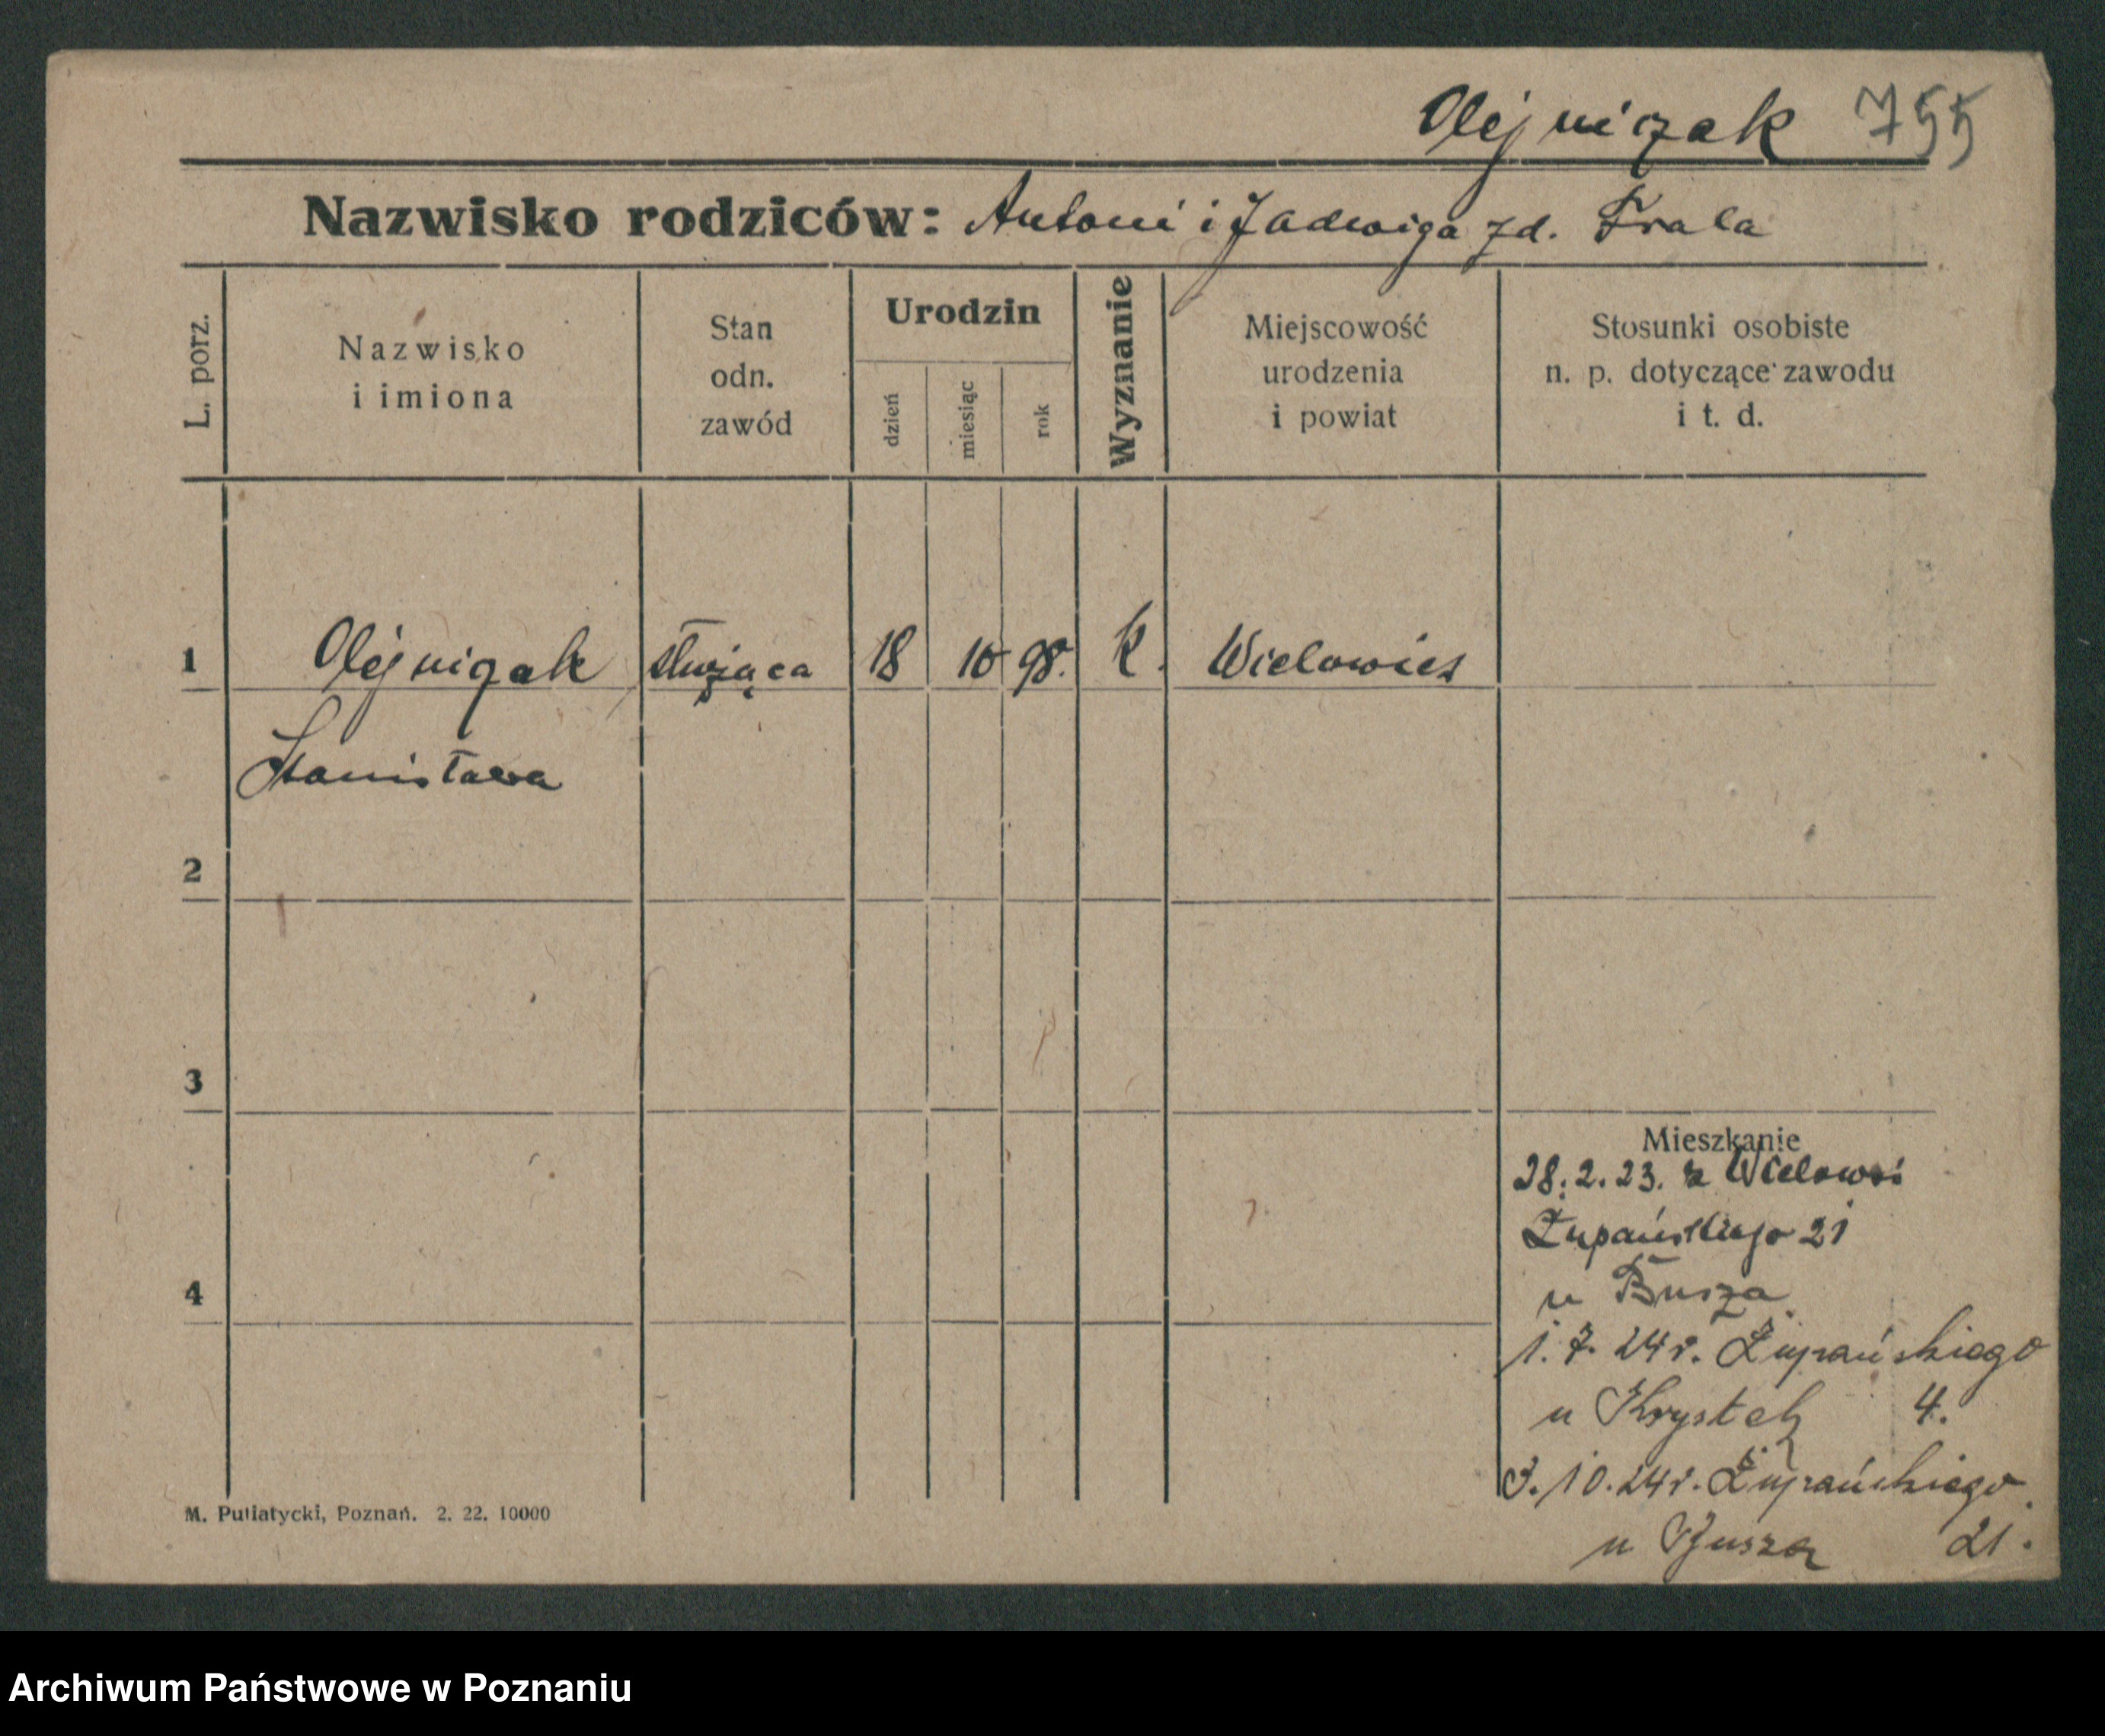 Olejniczak 755
Nazwisko rodziców: Antoni i Jadwiga zd. Frala
L. porz.
Nazwisko
i imiona
Stan
odn.
zawód
Urodzin
dzień
miesiąc
rok
Wyznanie
Miejscowość
urodzenia
i powiat
Stosunki osobiste
n. p. dotyczące zawodu
i t. d.
1 Olejniczak służąca 18 10 98. k. Wielowieś
Stanisława
2
3
4
Mieszkanie
28.2.23. z Wielowsi
Żupańskiego 21
u Busza
1.7.24r. Żupańskiego
u Krystek 4.
3.10.24r. Żupańskiego
u Busza 21.
M. Putiatycki, Poznań. 2. 22. 10000
Archiwum Państwowe w Poznaniu